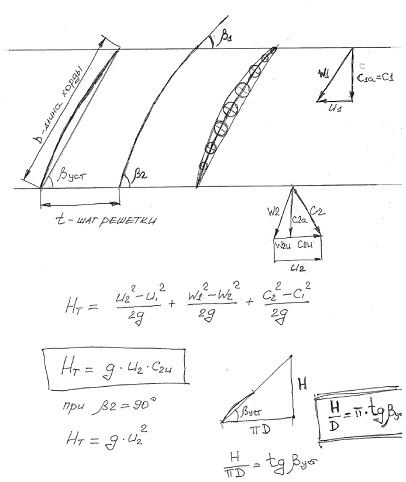 β1
b-длина хорды
βуст
β2
t - шаг решетки
W1
C1a=C1
U1
W2
C2a
C2
W2u C2u
U2
Hт = U2²-U1²/2g + W1²-W2²/2g + C2²-C1²/2g
Hт = g·U2·C2u
при β2=90°
Hт = g·U2²
H
βуст
πD
H/D = π·tgβус
H/πD = tgβуст